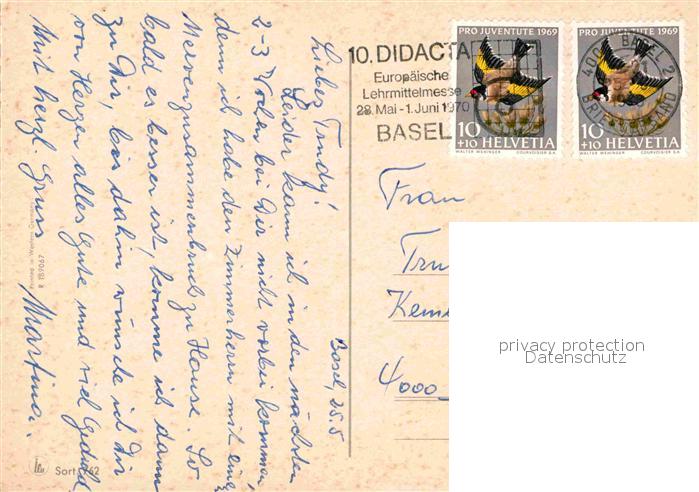 Basel, 25.5
Liebes Trudy!
Leider kann ich in den nächsten
2-3 Wochen bei Dir nicht vorbei kommen,
denn ich habe den Zimmerherrn mit einem
Nervenzusammenbruch zu Hause. So
bald es besser ist, komme ich dann
zu Dir, bis dahin wünsche ich Dir
von Herzen alles Gute und viel Geduld
Mit herzl. Gruss
Martina.
10. DIDACTA
Europäische
Lehrmittelmesse
28. Mai - 1. Juni 1970
BASEL
PRO JUVENTUTE 1969
10
+10 HELVETIA
WALTER WEHINGER COURVOISIER S.A.
PRO JUVENTUTE 1969
10
+10 HELVETIA
WALTER WEHINGER COURVOISIER S.A.
4000 BASEL 2
Frau
Tru
4000
privacy protection
Datenschutz
Printed in Western Germany
Sort. 762